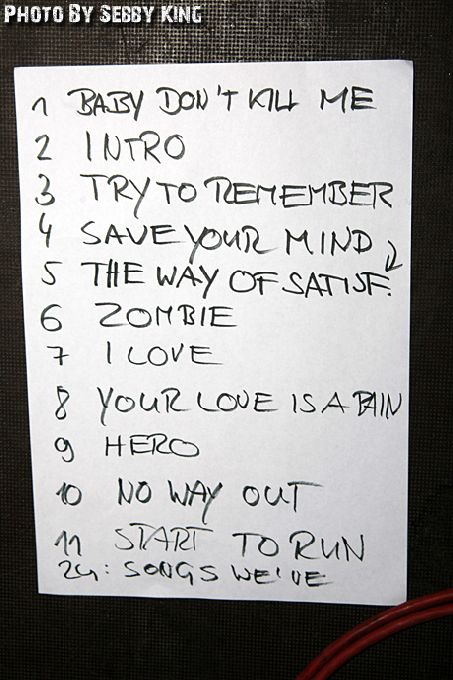 PHOTO BY SEBBY KING
1 BABY DON'T KILL ME
2 INTRO
3 TRY TO REMEMBER
4 SAVE YOUR MIND
5 THE WAY OF SATISF.
6 ZOMBIE
7 I LOVE
8 YOUR LOVE IS A PAIN
9 HERO
10 NO WAY OUT
11 START TO RUN
ZG: SONGS WE'VE